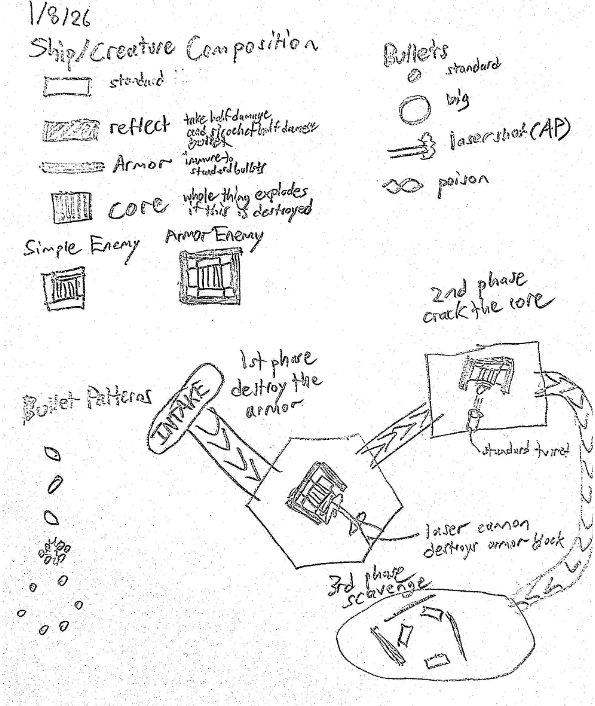 1/8/26
Ship/Creature Composition
standard
reflect
take half damage
and ricochet half damage
bullet
Armor
immune to
standard bullets
core
whole thing explodes
if this is destroyed
Simple Enemy
Armor Enemy
Bullets
standard
big
laser shot (AP)
poison
Bullet Patterns
INTAKE
1st phase
destroy the
armor
2nd phase
crack the core
standard turret
laser cannon
destroys armor block
3rd phase
scavenge